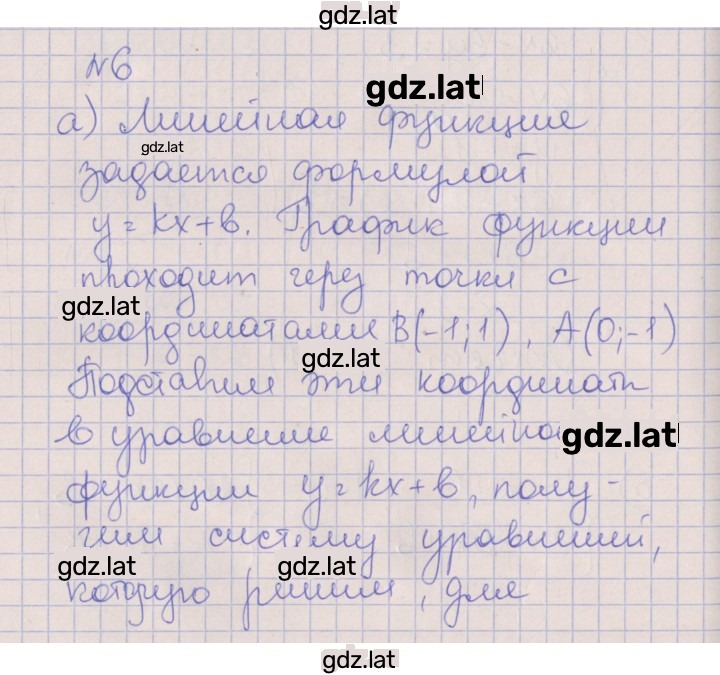 gdz.lat
№6
gdz.lat
а) Линейная функция
gdz.lat
задается формулой
y = kx + b. График функции
проходит через точки с
gdz.lat
координатами B(-1; 1), A(0; -1)
gdz.lat
Подставим эти координаты
в уравнение линейно
gdz.lat
функции y = kx + b, полу-
чим систему уравнений,
gdz.lat gdz.lat
которую решим, для
gdz.lat